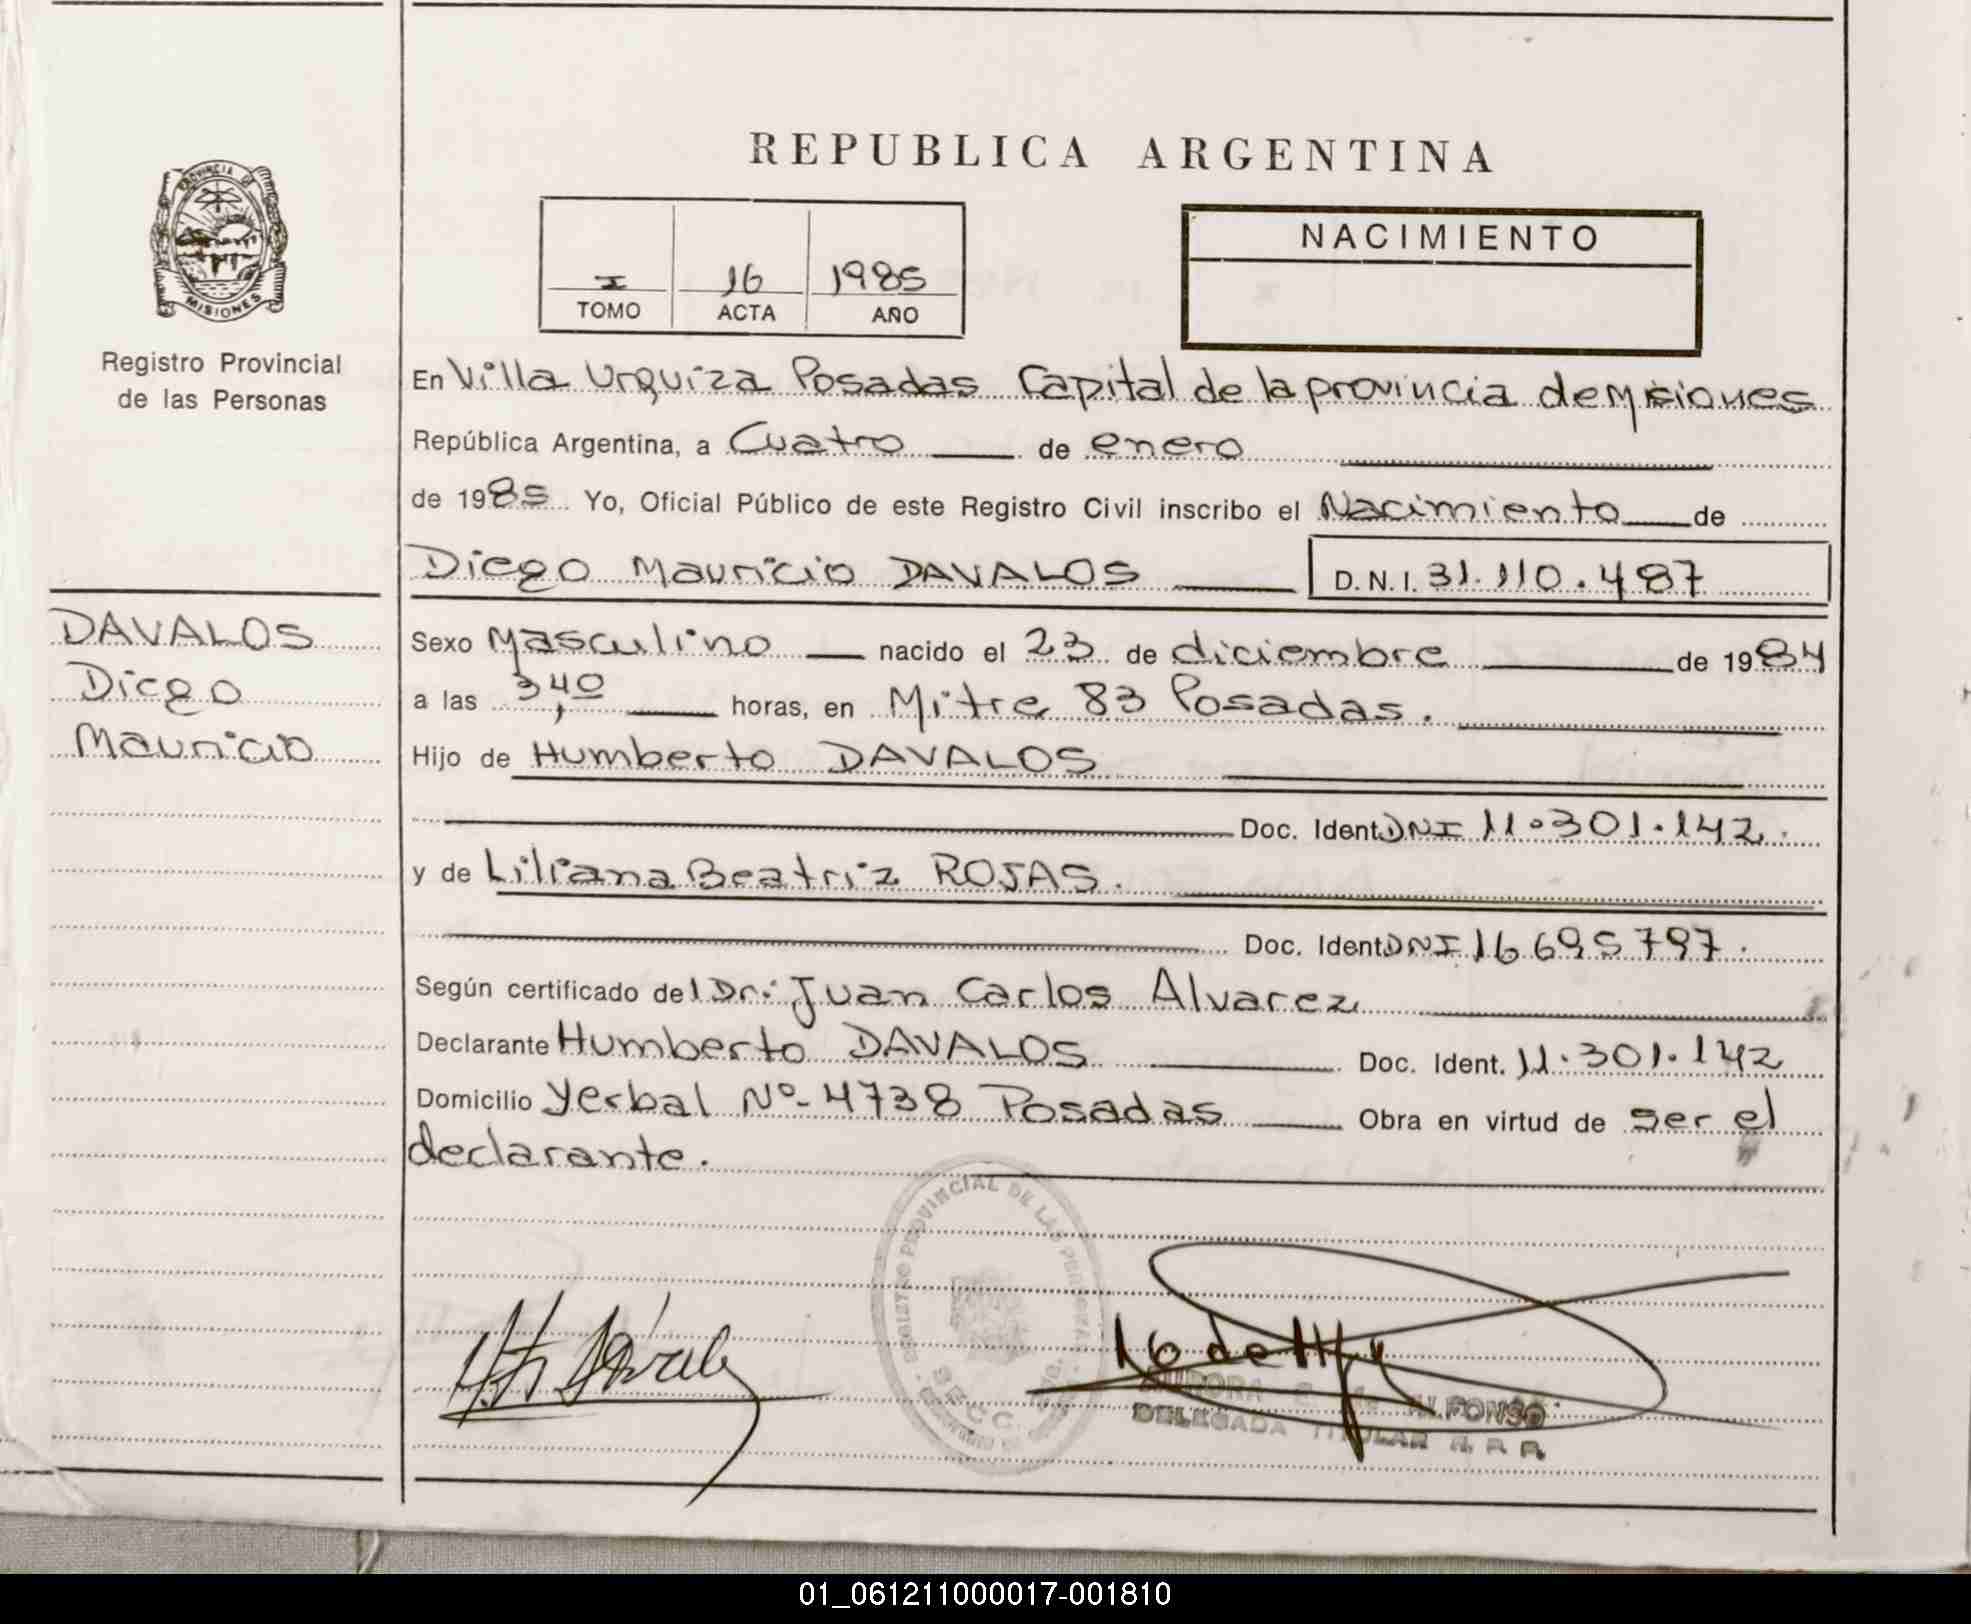 REPUBLICA ARGENTINA
PROVINCIA DE
MISIONES
Registro Provincial
de las Personas
I 16 1985
TOMO ACTA AÑO
NACIMIENTO
En Villa Urquiza Posadas Capital de la provincia de Misiones
República Argentina, a Cuatro de enero
de 1985 Yo, Oficial Público de este Registro Civil inscribo el Nacimiento de
Diego Mauricio DAVALOS D.N.I. 31.110.487
DAVALOS
Diego
Mauricio
Sexo Masculino nacido el 23 de diciembre de 1984
a las 3,40 horas, en Mitre 83 Posadas.
Hijo de Humberto DAVALOS
Doc. Ident DNI 11.301.142.
y de Liliana Beatriz ROJAS.
Doc. Ident DNI 16695797.
Según certificado del Dr: Juan Carlos Alvarez
Declarante Humberto DAVALOS Doc. Ident. 11.301.142
Domicilio Yerbal Nº 4738 Posadas Obra en virtud de ser el
declarante.
REGISTRO PROVINCIAL DE LAS PERSONAS
DELEGADA TITULAR R. P. P.
01_061211000017-001810